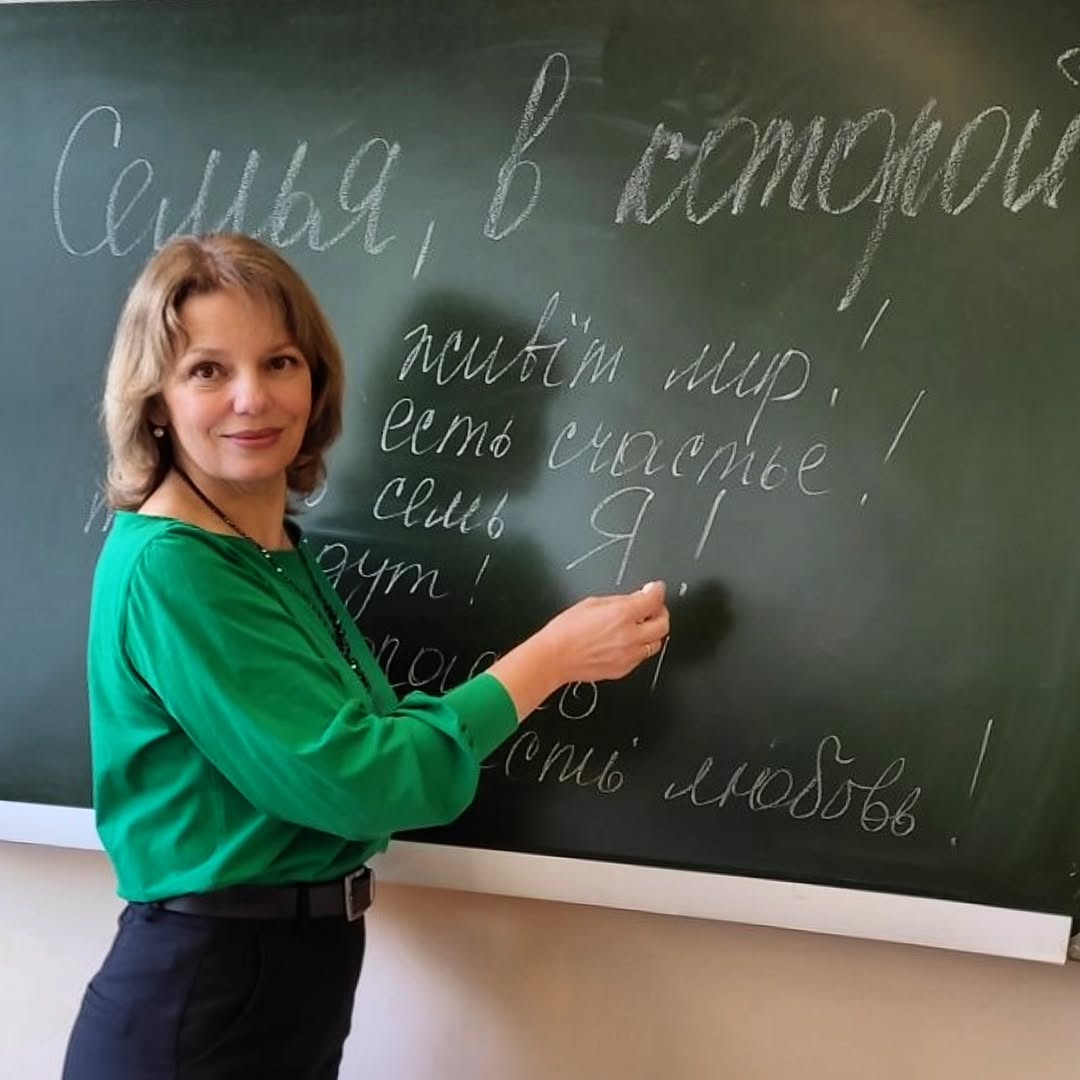 Семья, в которой
живёт мир!
есть счастье!
семь Я!
дут!
есть любовь!